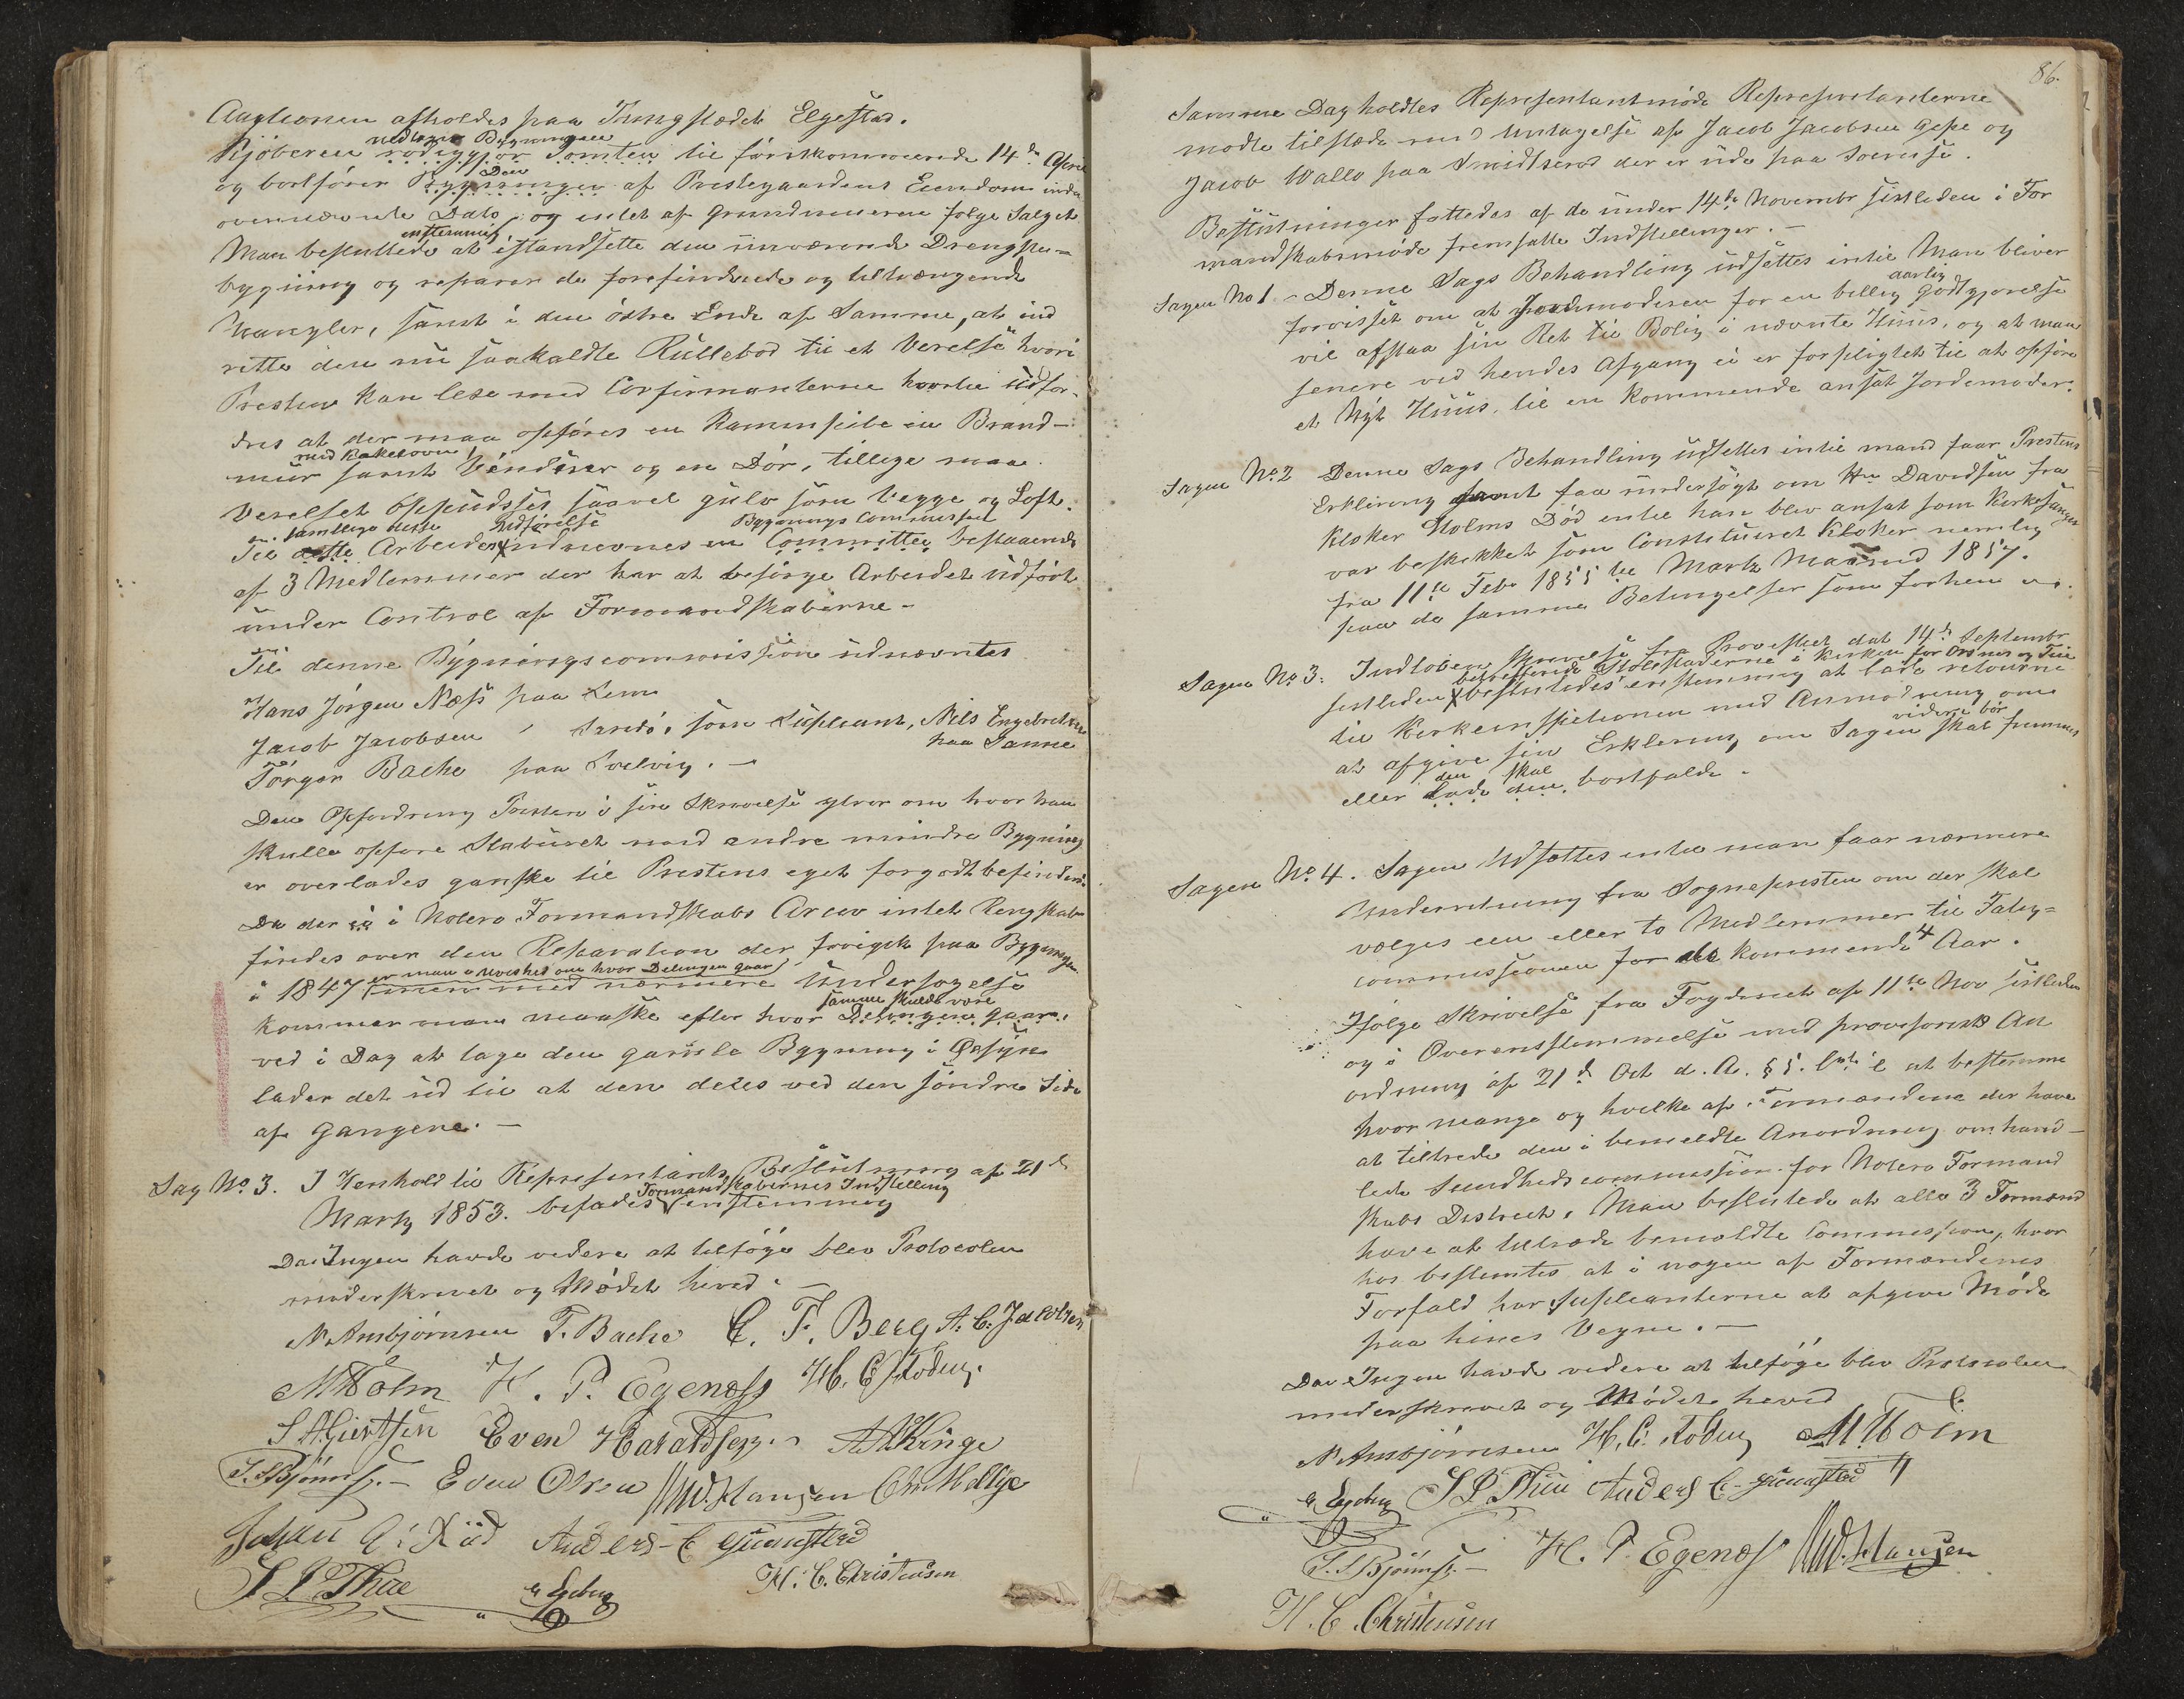 Auctionen afholdes paa Thingstædet Elgestad.
nedlægge Bygningen
Kjöberen rödiggjør Tomten til förstkommende 14de April
Den
og bortförer Bygningen af Prestegaardens Eiendom inden
overnævnte Dato, og intet af Grundmuren følge Salget
enstemmig
Man besluttede at istandsette den nuværende Drengstu-
bygning og reparer de forefindende og tiltrængende
Mangler, samt i den östre Ende af Samme, at ind
rette den nu saakaldte Rullebod til et Verelse hvori
Presten kan lese med Confirmanterne hvortil udfor-
dres at der maa opföres en Kammpibe en Brand-
med Bakerovn
mur samt Vinduer og en Dör, tillige maa
Verelset oppudses saavel gulv som Vegge og Loft.
samtlige disse Udførelse Bygnings Commission
Til dette Arbeides udnævnes en Committee bestaaende
af 3 Medlemmer der har at besörge Arbeidet Udfört
under Control af Formandskaberne -
Til denne Bygningscommission udnævntes
Hans Jörgen Næss paa Lem
Jacob Jacobsen " Sandö, som Supleant, Nils Engebretsen
paa Sanne
Törger Bache paa Selvig. -
Den Opfordring Presten i sin Skrivelse ytrer om hvor han
skulle opföre Stabüret med andre mindre Bygning
er overlades ganske til Prestens eget forgodtbefindende.
Da der ei i Nøtterø Formandskabs Arciv intet Rengskab
findes over den Reparation der foregik paa Bygningen
er man i uvished om hvor Delingen gaar
i 1847 men med nærmere Undersøgelse
samme skulde være
kommer man maaske efter hvor Delingen gaar.
ved i Dag at tage den gamle Bygning i Øiesyn
lader det ud til at den deles ved den söndre Side
af Gangene. -
Sag No 3. I Henhold til Representants Beslutning af 21de
Formandskabernes Indstilling
Marts 1853. bifades enstemmig
Da Ingen havde videre at tilföge blev Protocolen
underskrevet og Mödet hævet. -
N Ambjörnsen T. Bache C. F. Berg A. C. Jacobsen
M Holm H. P. Egenæss H. C. Stoding.
S A Giertsen Even Haraldsen A A Ringe
T. A Bjömss. - Even Olsen M W. Hansen Chr Mellije
Johan A: Röd Anders C Gunnestad
S P Thue H. C. Christensen
86.
Samme Dag holdtes Representantmöde Representanterne
mödte tilstæde med Untagelse af Jacob Jacobsen Gipe og
Jacob Wallø paa Smidtsröd der er ude paa Soereise.
Beslutninger fattedes af de under 14de Novembr sistleden i For
mandskabsmöde fremsatte Indstillinger. -
Sagen No 1 - Denne Sags Behandling udsættes intil Man bliver
aarlig
forvisset om at Jordemoderen for en billig Godtgjorelse
vil afstaa sin Ret til Bolig i nævnte Huus, og at man
senere ved hendes Afgang ei er forpligtet til at opföre
et Nyt Huus, til en kommende ansat Jordemoder.
Sagen No 2 Denne Sags Behandling udsettes intil mand faar Prestens
Erklæring samt faa undersögt om Hr Davidsen fra
Kloker Holms Död intil han blev ansat som Kirkesanger
var beskikket som Constitueret Kloker nemlig
fra 11te Febr 1855 til Marts Maaned 1857.
paa de samme Betingelser som forhen
Sagen No 3. Indloben Skrivelse fra Provstiet dat 14de Septembr
betreffende Stolestaderne i Kirken for Orsnes og Tiie
sistleden besluttedes enstemmig at lade retourne
til Kirkeinspectionen med Anmodning om
videre bør
at afgive sin Erklering om Sagen skal fremmes
den skal
eller lade den bortfalde.
Sagen No 4. Sagen Udsættes intil man faar nærmere
Underretning fra Sognepresten om der skal
vælges een eller to Medlemmer til Fattig-
commissionen for de kommende 4 Aar.
Ifølge Skrivelse fra Fogderiet af 11te Nov sistleden
og i Overensstemmelse med provisorisk An
ordning af 21de Oct d. A. § 5. at bestemme
hvor mange og hvilke af Formændene der have
at tiltrede den i bemeldte Anordning omhand-
lede Sundhedscommission for Nøtterø Formand
skabs Destrict, Man besluttede at alle 3 Formænd
have at tiltræde bemældte Commission, hvor
hos bestemtes at i nogen af Formændenes
Forfald har Supleanterne at afgive Möde
paa hines Vegne. -
Da Ingen havde videre at tilföge blev Protocolen
underskrevet og Mödet hævet
N Ambjörnsen H. C. Stoding M. Holm
S P Thue Anders C. Gunnestad
T. A Bjömss. - H. P. Egenæss M W. Hansen
H. C. Christensen